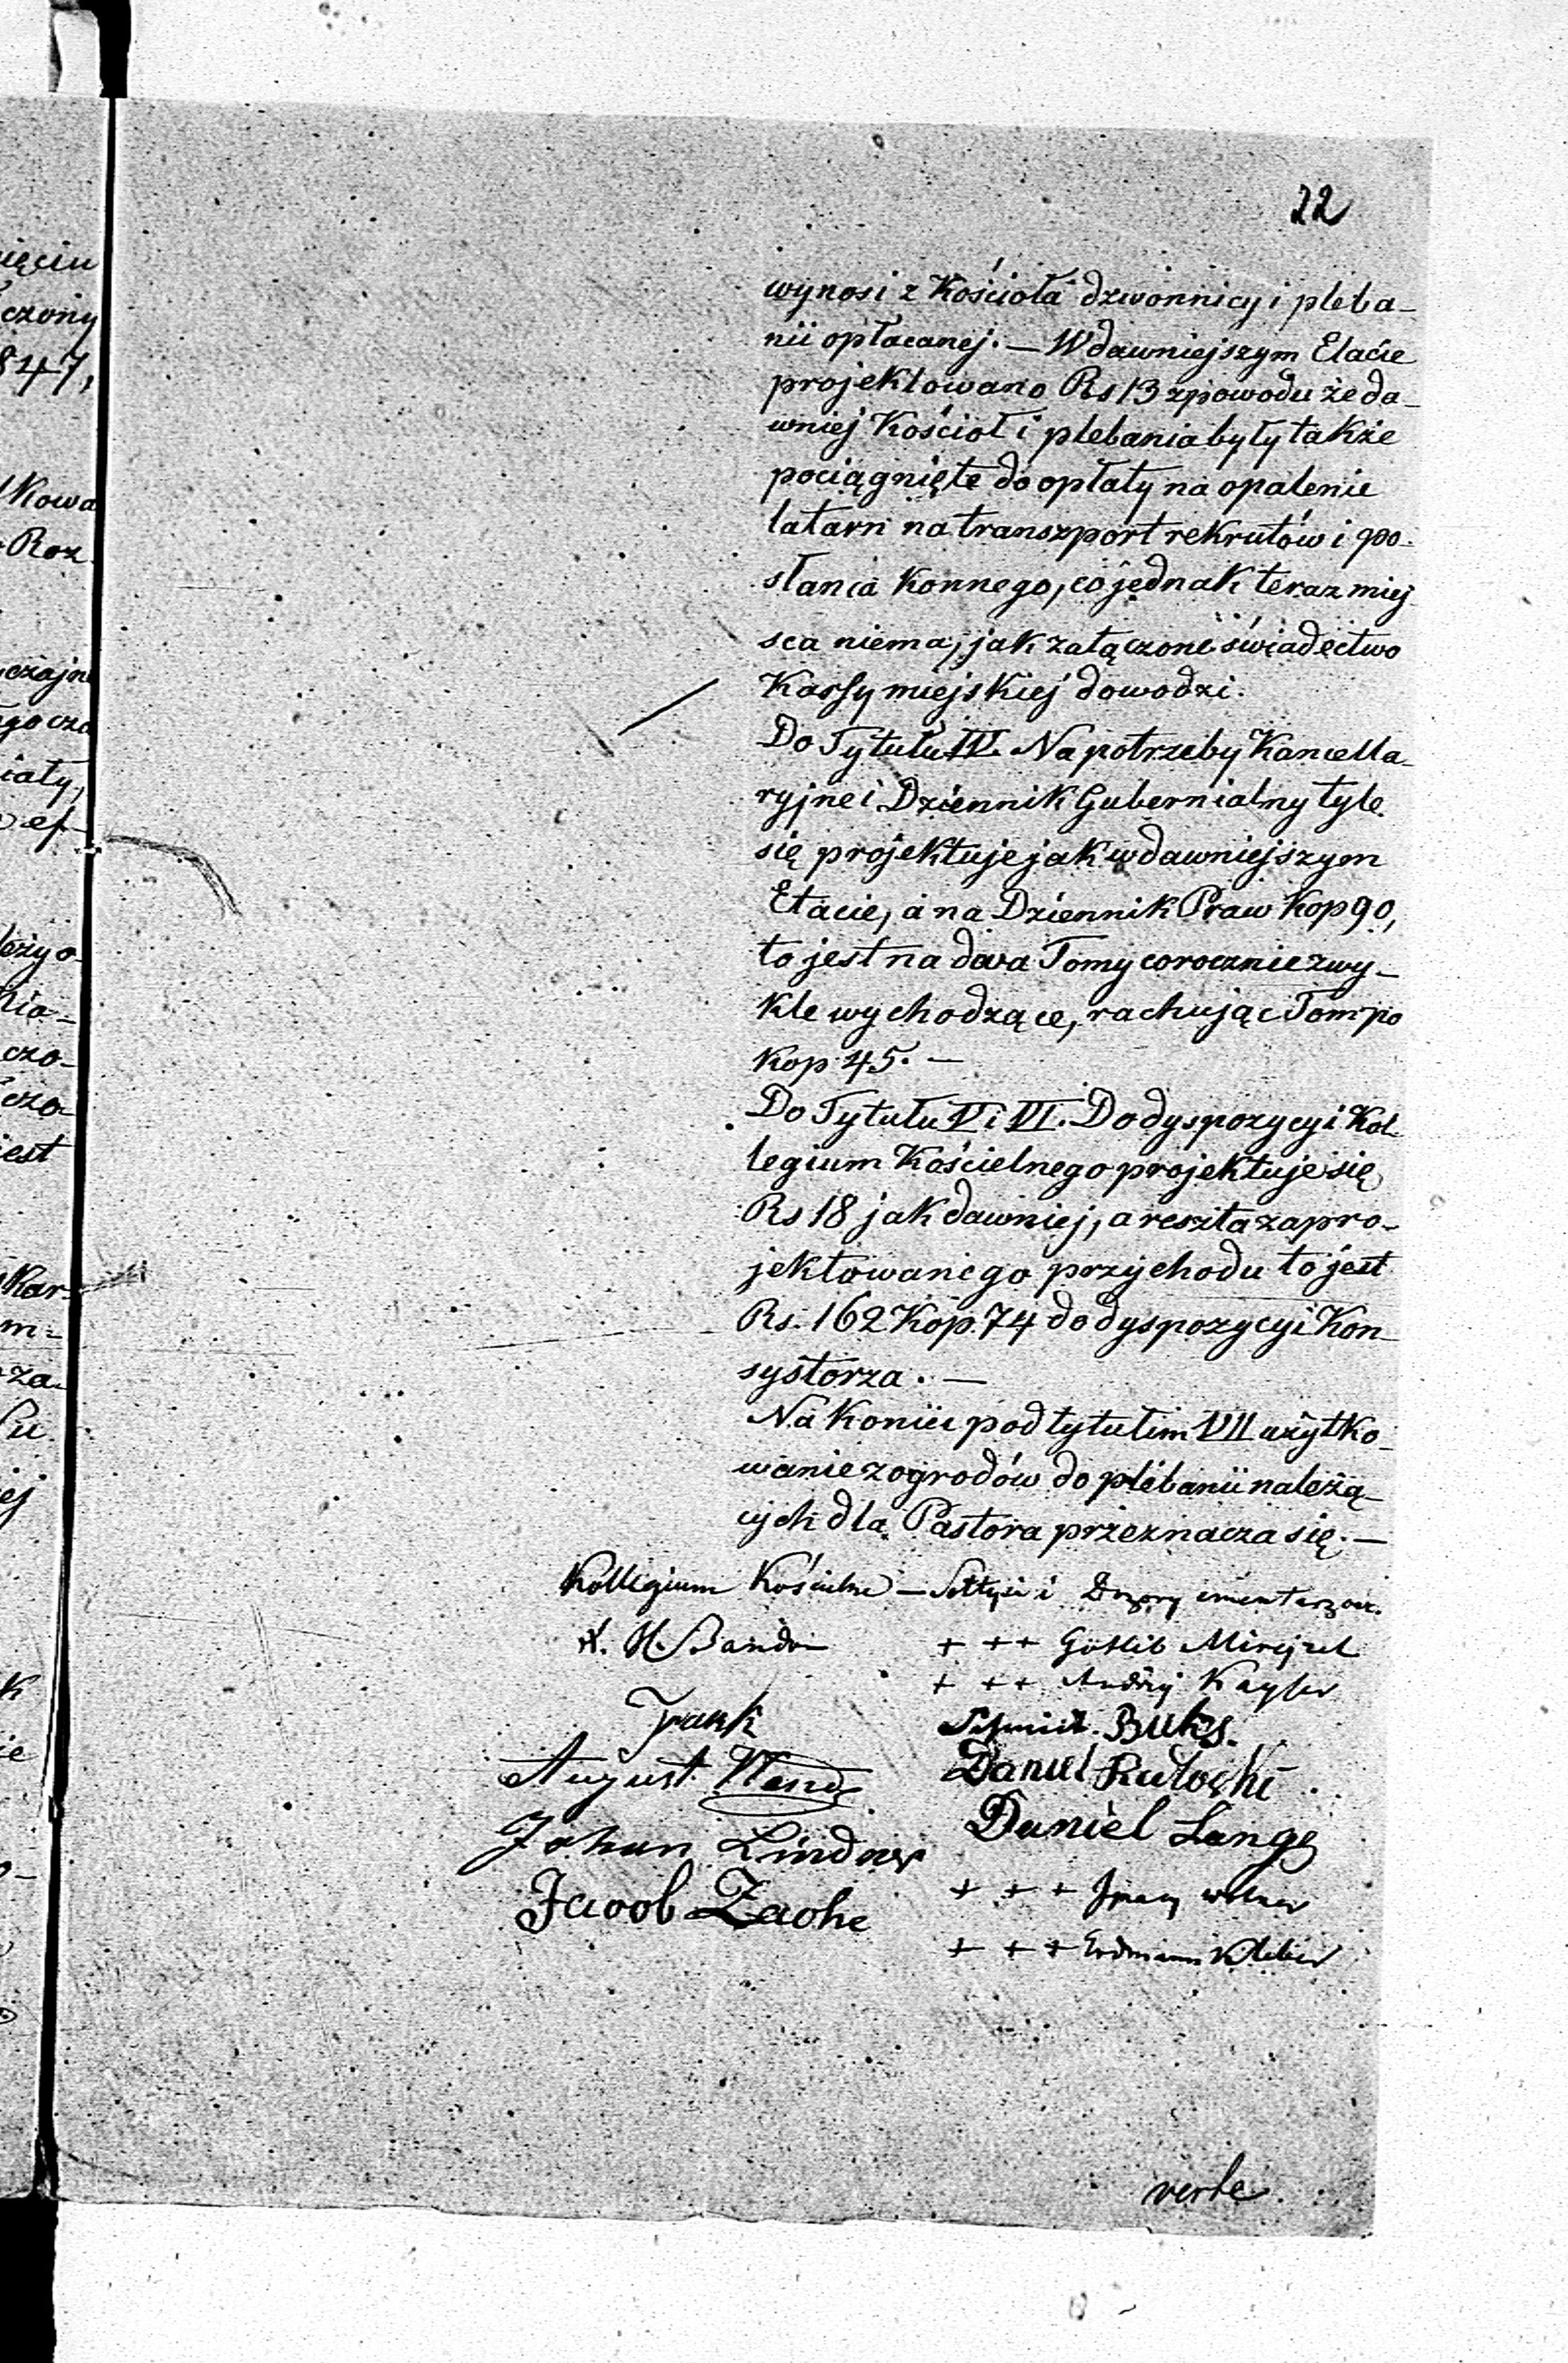 22
wynosi z Kościoła dzwonnicy i pleba-
nii opłacanej. — W dawniejszym Etacie
projektowano Rs 13 z powodu że da-
wniej Kościoł i plebania były także
pociągnięte do opłaty na opalenie
latarń na transzport rekrutów i po-
słańca Konnego, co jednak teraz miej
sca niema, jak załączone świadectwo
Kassy miejskiej dowodzi.
Do Tytułu IV. Na potrzeby Kancella-
ryjne i Dziennik Gubernialny tyle
się projektuje jak w dawniejszym
Etacie, a na Dziennik Praw Kop 90,
to jest na dwa Tomy corocznie zwy-
kle wychodzące, rachując Tom po
Kop 45. —
Do Tytułu V i VI. Do dyspozycyi Kol-
legium Kościelnego projektuje się
Rs 18 jak dawniej, a reszta zapro-
jektowanego przychodu to jest
Rs. 162 Kop. 74 do dyspozycyi Kon-
systorza. —
Na koniec pod tytułem VII użytko-
wanie z ogrodów do plebanii należą-
cych dla Pastora przeznacza się. —
Kollegium Kościelne — Sołtysi i Dozory
+ ++ Gottlib
+ ++ Andrzej Kayser
Buks.
August
Daniel
Johan Lindner
Daniel Lange
Jacob Zache
+ + +
+ + + Erdmann
verte
ięciu
czony
847,
Kowa
Roz
czajn
go cza
iały,
ef
leży o
nia-
czo-
cza-
jest
Kar-
m-
za-
ej
k
ie